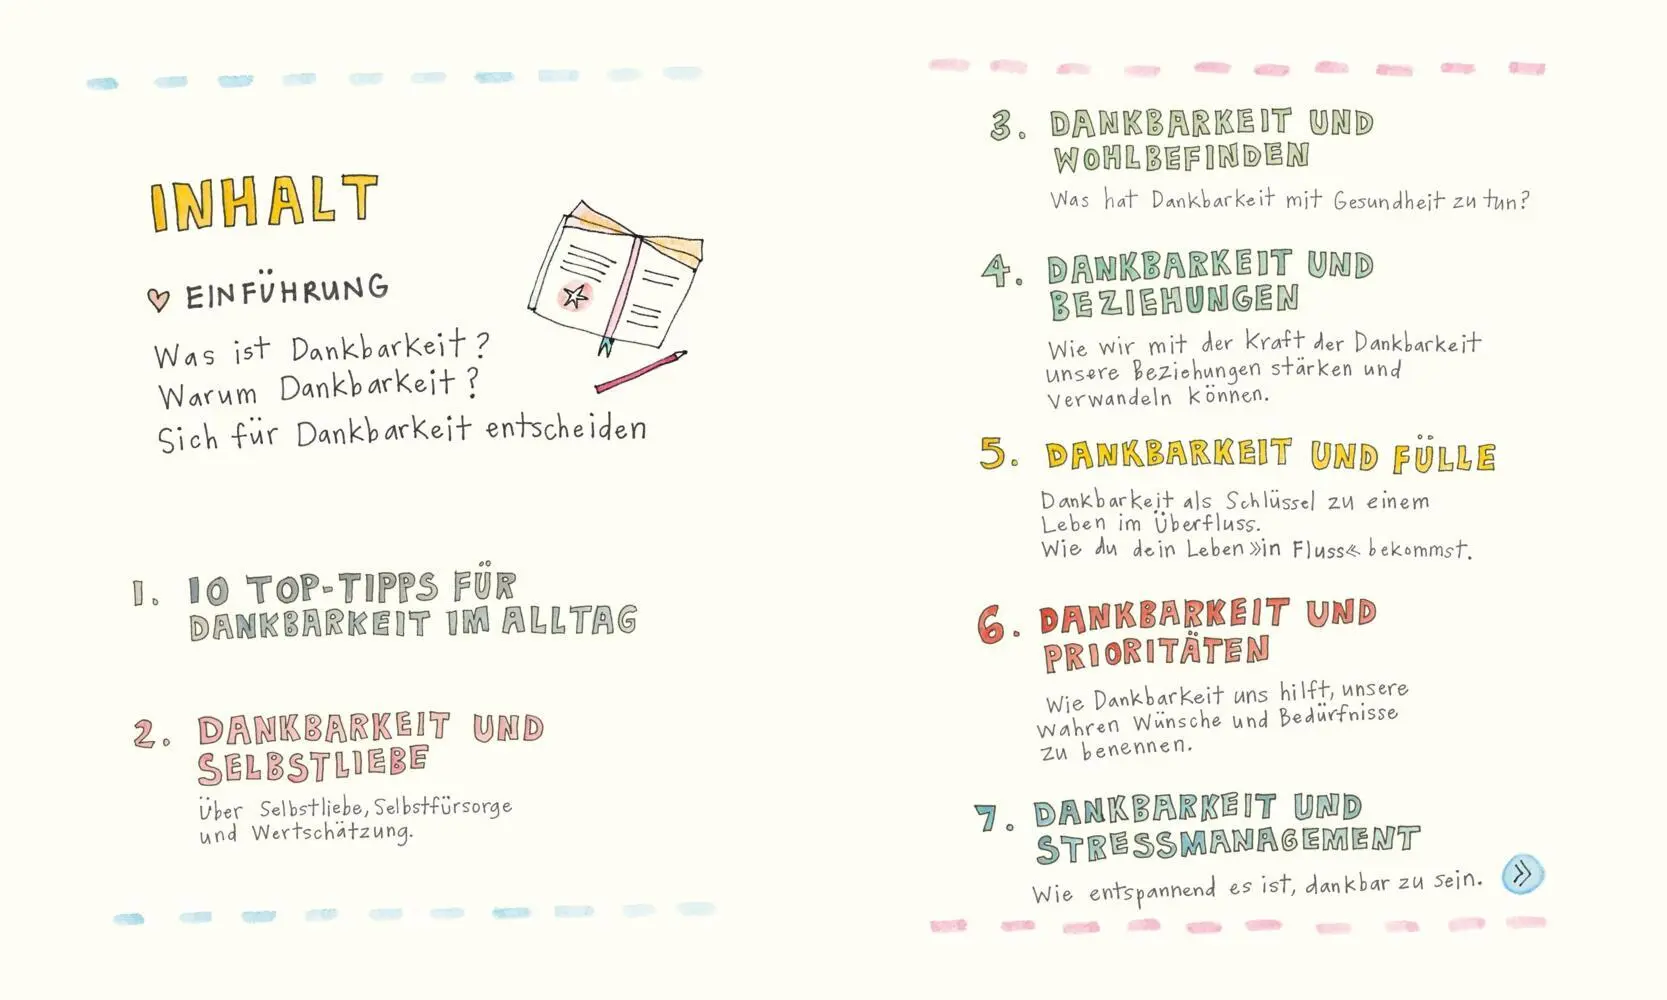 INHALT
EINFÜHRUNG
Was ist Dankbarkeit?
Warum Dankbarkeit?
Sich für Dankbarkeit entscheiden
1. 10 TOP-TIPPS FÜR
DANKBARKEIT IM ALLTAG
2. DANKBARKEIT UND
SELBSTLIEBE
Über Selbstliebe, Selbstfürsorge
und Wertschätzung.
3. DANKBARKEIT UND
WOHLBEFINDEN
Was hat Dankbarkeit mit Gesundheit zu tun?
4. DANKBARKEIT UND
BEZIEHUNGEN
Wie wir mit der Kraft der Dankbarkeit
unsere Beziehungen stärken und
verwandeln können.
5. DANKBARKEIT UND FÜLLE
Dankbarkeit als Schlüssel zu einem
Leben im Überfluss.
Wie du dein Leben »in Fluss« bekommst.
6. DANKBARKEIT UND
PRIORITÄTEN
Wie Dankbarkeit uns hilft, unsere
wahren Wünsche und Bedürfnisse
zu benennen.
7. DANKBARKEIT UND
STRESSMANAGEMENT
Wie entspannend es ist, dankbar zu sein.
»